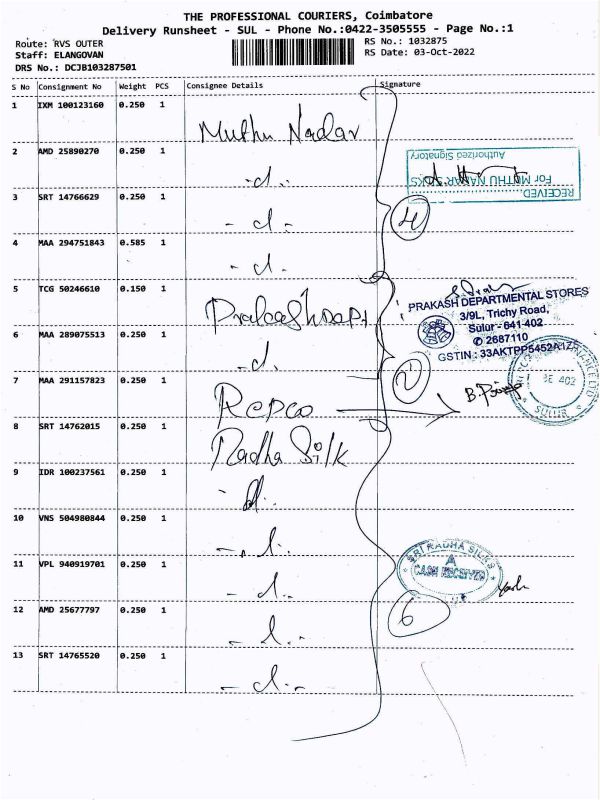 THE PROFESSIONAL COURIERS, Coimbatore
Delivery Runsheet - SUL - Phone No.:0422-3505555 - Page No.:1
Route: RVS OUTER
RS No.: 1032875
Staff: ELANGOVAN
RS Date: 03-Oct-2022
DRS No.: DCJB103287501
S No Consignment No Weight PCS Consignee Details Signature
1 IXM 100123160 0.250 1
Muthu Nadar
2 AMD 25890270 0.250 1
-d.-
RECEIVED.
For MUTHU NADAR SILKS
Authorized Signatory
3 SRT 14766629 0.250 1
-d.-
4
4 MAA 294751843 0.585 1
-d.
5 TCG 50246610 0.150 1
Prakash Dept
PRAKASH DEPARTMENTAL STORES
3/9L, Trichy Road,
Sulur - 641-402
✆ 2687110
GSTIN : 33AKTPP5452A1Z5
6 MAA 289075513 0.250 1
-d.
2
7 MAA 291157823 0.250 1
Repco
SULUR
8 SRT 14762015 0.250 1
Radha Silk
9 IDR 100237561 0.250 1
-d.
10 VNS 504980844 0.250 1
-d.
11 VPL 940919701 0.250 1
-d.-
SRI RADHA SILKS
CASH RECEIVED
12 AMD 25677797 0.250 1
-d.-
6
13 SRT 14765520 0.250 1
-d.-